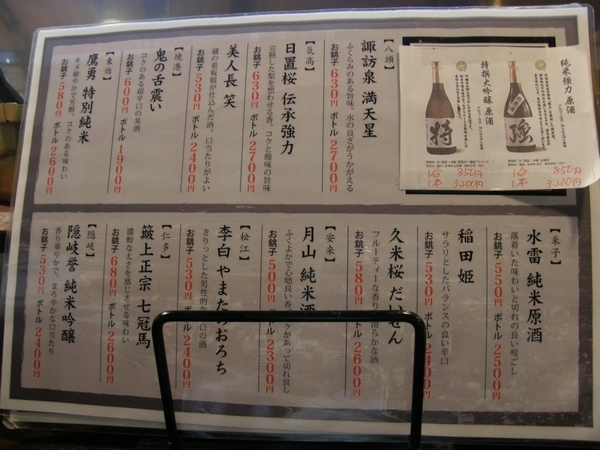 純米強力 原酒
特撰大吟醸 原酒
強
特
1合 850円
1本 3200円
1合 850円
1本 3200円
【八頭】
諏訪泉 満天星
ふくらみのある旨味。水の良さがうかがえる
お銚子 630円 ボトル 2700円
【気高】
日置桜 伝承強力
完熟した梨を想わせる香。コクと酸味の旨味
お銚子 630円 ボトル 2700円
美人長 笑
蔵の看板娘が仕込んだ酒。口当たりがよい
お銚子 530円 ボトル 2400円
【境港】
鬼の舌震い
コクのある超辛口の薬酒
お銚子 600円 ボトル 1900円
【東伯】
鷹勇 特別純米
キメ細やかで芳醇 コクのある味わい
お銚子 580円 ボトル 2600円
【米子】
水雷 純米原酒
落着いた味わいと切れの良い喉ごし
お銚子 550円 ボトル 2500円
稲田姫
サラリとしたバランスの良い辛口
お銚子 530円 ボトル 2400円
久米桜 だいせん
フルーティーな香り 滑らかな酒
お銚子 580円 ボトル 2600円
【安来】
月山 純米酒
ふくよかで心地良い香 コクがあって切れ良し
お銚子 500円 ボトル 2300円
【松江】
李白 やまたのおろち
きりっとした男性的な辛口の酒
お銚子 530円 ボトル 2400円
【仁多】
簸上正宗 七冠馬
濃醇な太さを感じさせる味わい
お銚子 680円 ボトル 2600円
【隠岐】
隠岐誉 純米吟醸
香り華やかで、まろやかな口当たり
お銚子 530円 ボトル 2400円